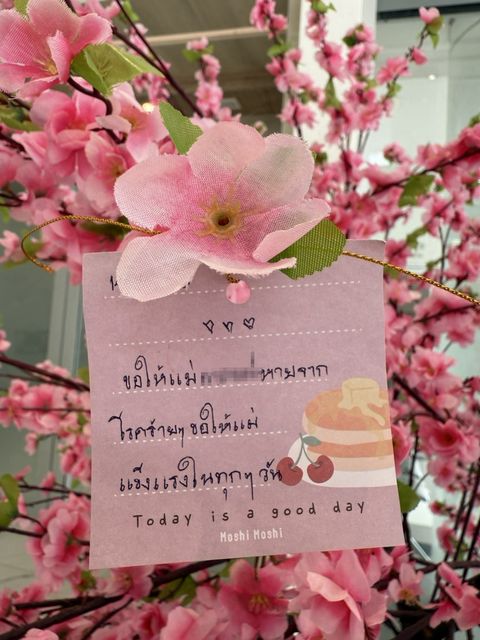 ♡ ♡ ♡
ขอให้แม่ หายจาก
โรคร้ายๆ ขอให้แม่
แข็งแรงในทุกๆ วัน
Today is a good day
Moshi Moshi